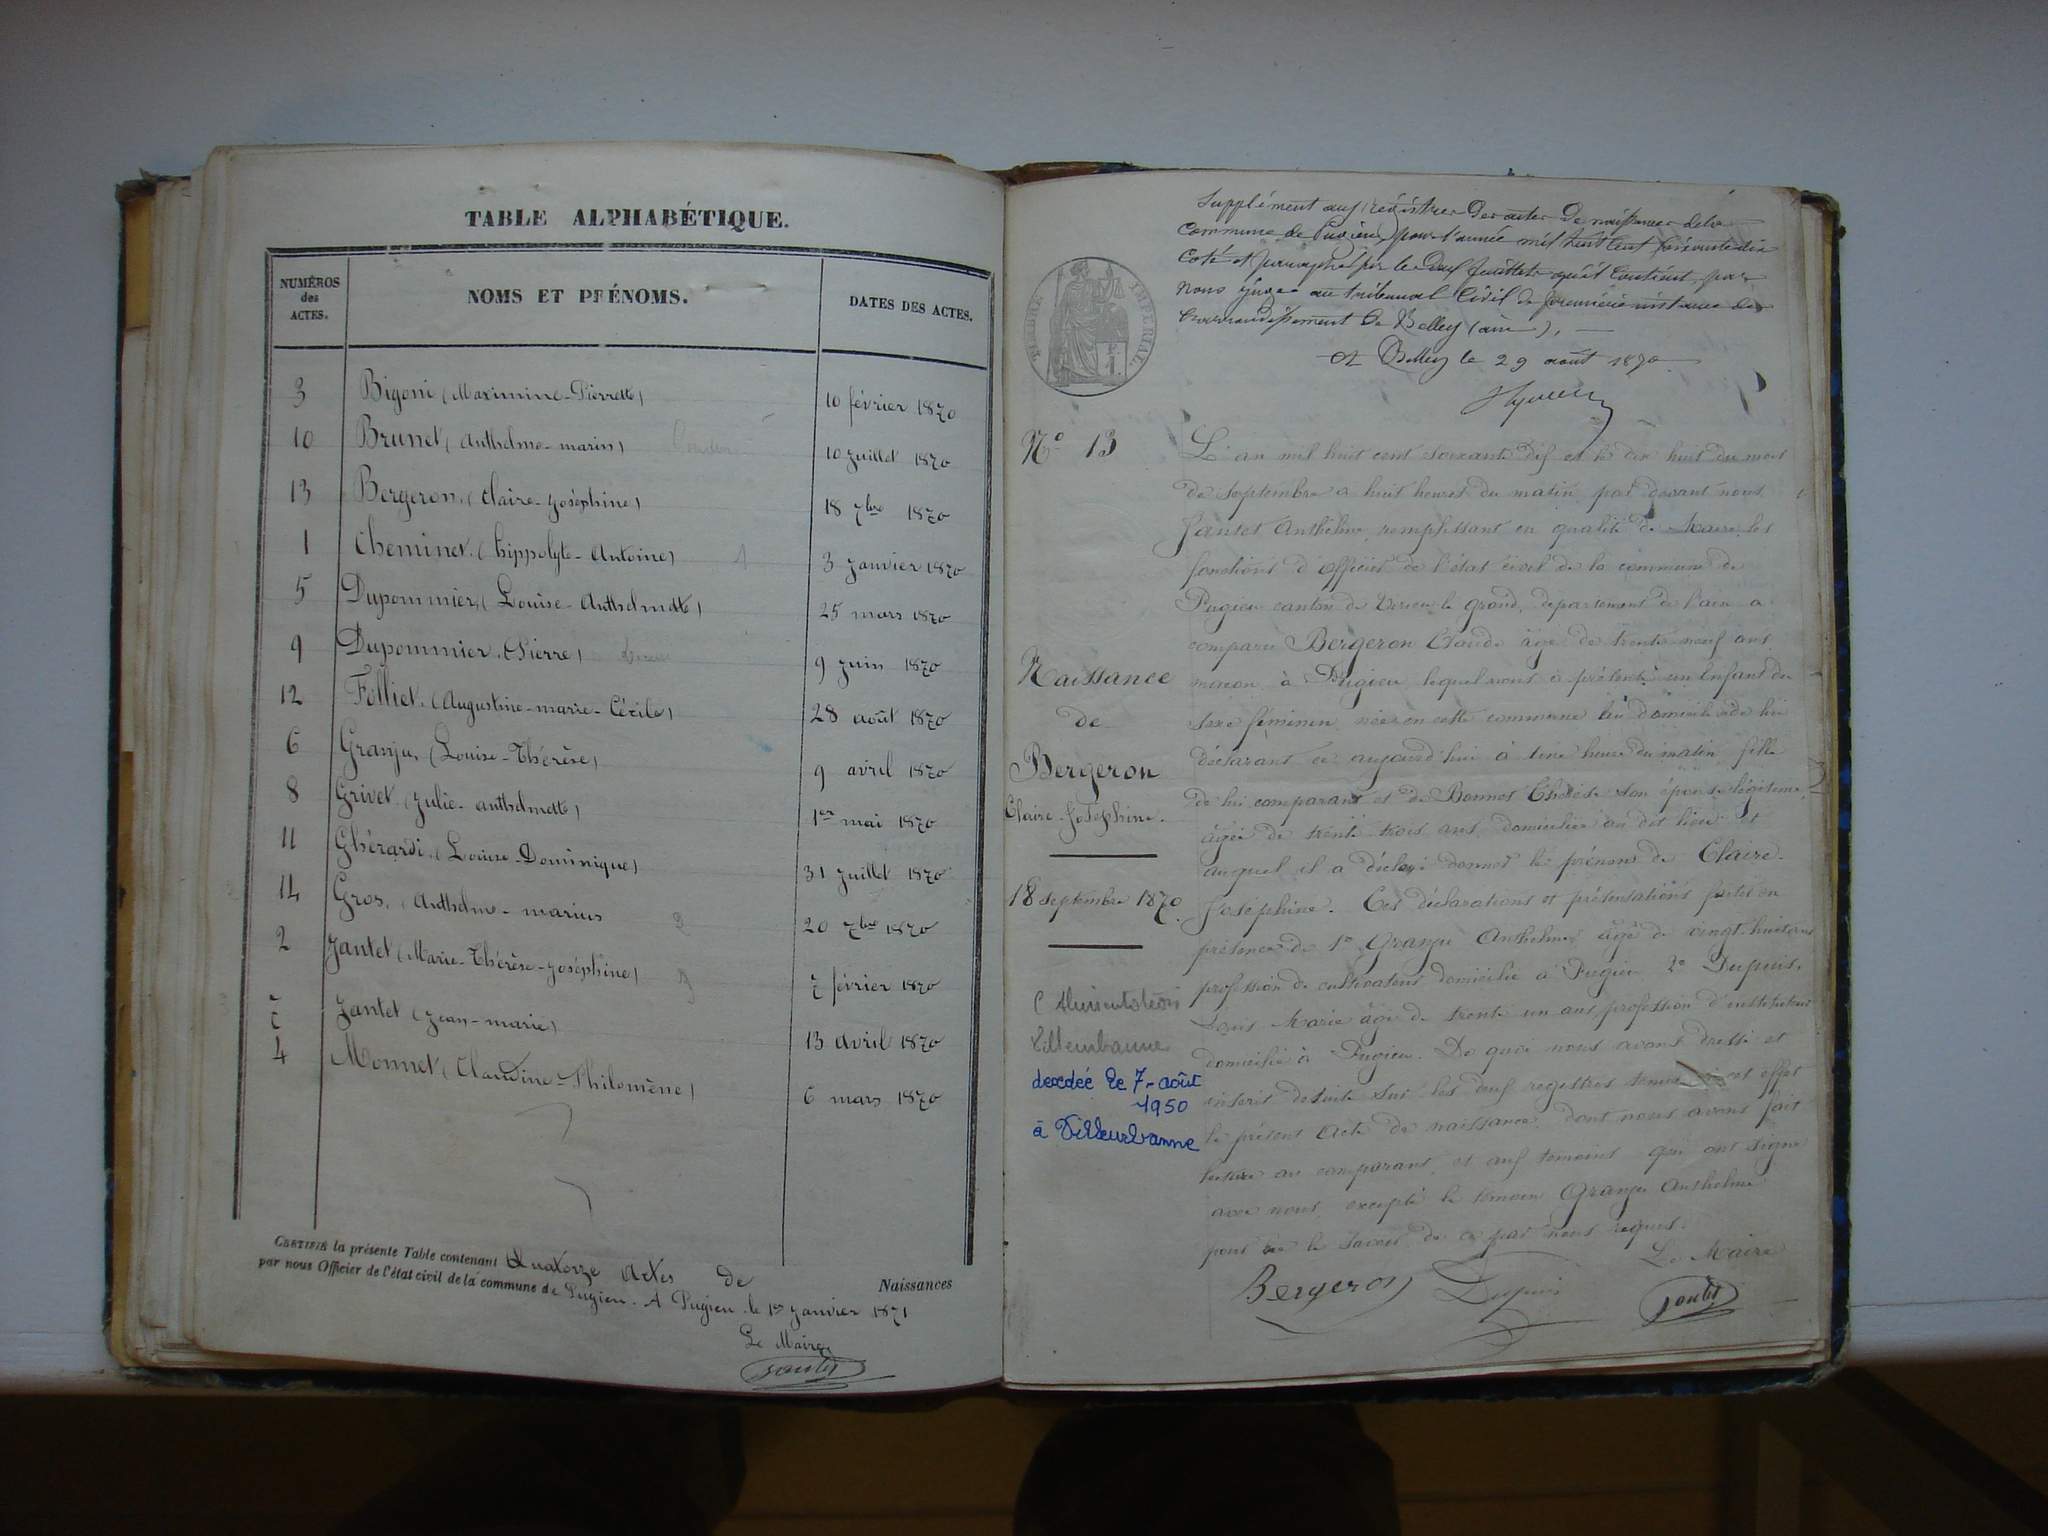 TABLE ALPHABÉTIQUE.
NUMÉROS des ACTES. NOMS ET PRÉNOMS. DATES DES ACTES.
3 Bigoni (Maximine-Pierrette) 10 février 1870
10 Brunet (Anthelme-marin) 10 Juillet 1870
13 Bergeron, (Claire-Joséphine) 18 7bre 1870
1 Cheminet. (hippolyte-Antoine) 3 Janvier 1870
5 Dupommier, (Louise-Anthelmette) 25 mars 1870
9 Dupommier. (Pierre) 9 Juin 1870
12 Folliet. (Augustine-marie-Cécile) 28 août 1870
6 Granju, (Louise-Thérèse) 9 avril 1870
8 Grivet (Julie-anthelmette) 1er mai 1870
11 Ghérardi. (Louise-Dominique) 31 Juillet 1870
14 Gros, (Anthelme-marius 20 7bre 1870
2 Jantet (Marie-Thérèse-Joséphine) 7 février 1870
7 Jantet (Jean-marie) 13 avril 1870
4 Monnet (Claudine-Philomène) 6 mars 1870
CERTIFIÉ la présente Table contenant Quatorze Actes de Naissances
par nous Officier de l'état civil de la commune de Pugieu. A Pugieu le 1er Janvier 1871
Le Maire,
Jantet
Supplément aux registres des actes de naissances de la
Commune de Pugieu, pour l'année mil huit cent soixante dix
Coté et paraphé par les deux feuillets qu'il contient, par
nous Juge au tribunal Civil de première instance de
l'arrondissement de Belley (ain).
A Belley le 29 août 1870
TIMBRE IMPERIAL
No 13
Naissance
de
Bergeron
Claire-Joséphine.
18 septembre 1870
Villeurbanne
decedée le 7-août
1950
à Villeurbanne
L'an mil huit cent soixante dix et le dix huit du mois
de Septembre à huit heures du matin, par devant nous
Jantet Anthelme remplissant en qualité de Maire les
fonctions d'officier de l'état civil de la commune de
Pugieu canton de Virieu le grand, département de l'ain a
comparu Bergeron Claude âgé de trente neuf ans
maçon à Pugieu lequel nous a présenté un Enfant du
sexe féminin née en cette commune au domicile de lui
déclarant ce aujourd'hui à une heure du matin, fille
de lui comparant et de Bonnet Thérèse son épouse légitime
âgée de trente trois ans, domiciliée au dit lieu et
auquel il a déclaré donner les prénoms de Claire-
Joséphine. Ces déclarations et présentations faites en
présence de 1o Granju Anthelme âgé de vingt huit ans
profession de cultivateur domicilié à Pugieu 2o Dupuis,
Louis Marie âgé de trente un ans profession d'instituteur
domicilié à Pugieu. De quoi nous avons dressé et
inscrit de suite sur les deux registres tenus à cet effet
le présent Acte de naissance dont nous avons fait
lecture au comparant, et aux temoins qui ont signé
avec nous, excepté le temoin Granju Anthelme
pour ne le savoir de ce par nous requis.
Le Maire
Bergeron Dupuis Jantet